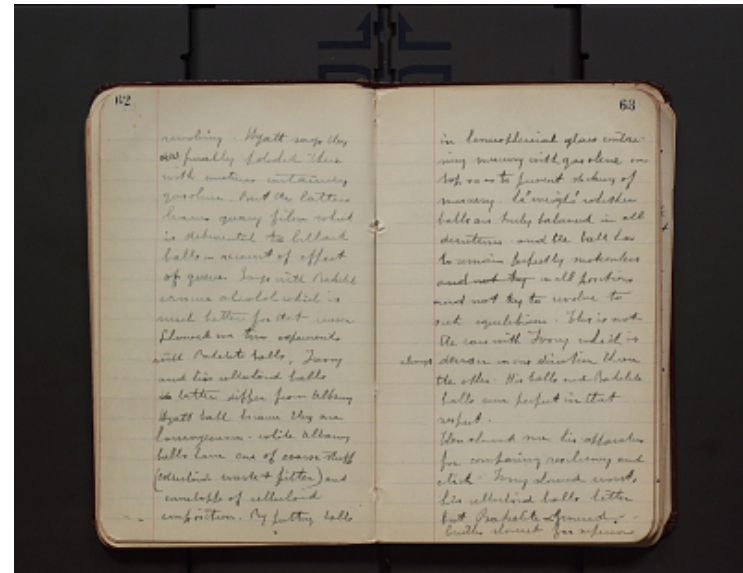 62
revolving. Hyatt says they
finally polished them
with mixtures containing
gasoline. but the latter
leaves greasy film which
is detrimental to billiard
balls on account of effect
of queue. Says with Bakelite
can use alcohol which is
much better for that reason
Showed me two experiments
with Bakelite balls, Ivory
and his celluloid balls
latter differ from Albany
Hyatt ball because they are
homogeneous. while Albany
balls have one of coarse stuff
(celluloid waste + filler) and
enveloppe of celluloid
composition. By putting balls
63
in hemispherical glass contai-
ning mercury with gasoline on
top so as to prevent sticking of
mercury. he "weighs" whether
balls are truly balanced in all
directions and the ball has
to remain perfectly motionless
and not try in all positions
and not try to revolve to
seek equilibrium. This is not
the case with Ivory which is
always denser in one direction than
the other. His balls and Bakelite
balls were perfect in that
respect.
Then showed me his apparatus
for comparing resiliency and
click. Ivory showed worst,
his celluloid balls better
but Bakelite
balls showed far superior